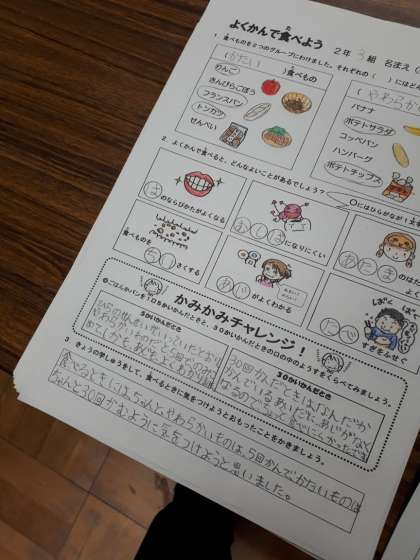 よくかんで食べよう
2年 3組 名まえ(
1. 食べものを2つのグループにわけました。それぞれの( )にはど
(かたい )食べもの
りんご
きんぴらごぼう
フランスパン
トンカツ
せんべい
(やわらか
バナナ
ポテトサラダ
コッペパン
ハンバーグ
ポテトチップ
2. よくかんで食べると、どんなよいことがあるでしょう?
○にはひらがなが1文
はのならびかたがよくなる
むしばになりにくい
あたまのはた
食べものをちいさくする
あじがよくわかる
ぱく
ぱく
たべ
すぎをふせぐ
かみかみチャレンジ!
ごはんかパンを10回かいかんだときと、30かいかんだときの口の中のようすをくらべてみましょう。
30かいかんだとき
30回かんだときはなんだか
3 きょうの学しゅうをして、食べるときに気をつけようとおもったことをかきましょう。
食べるときには、ちゃんとやわらかいものは、5回かんでかたいものは
ちゃんと30回かむように気をつけようと思いました。